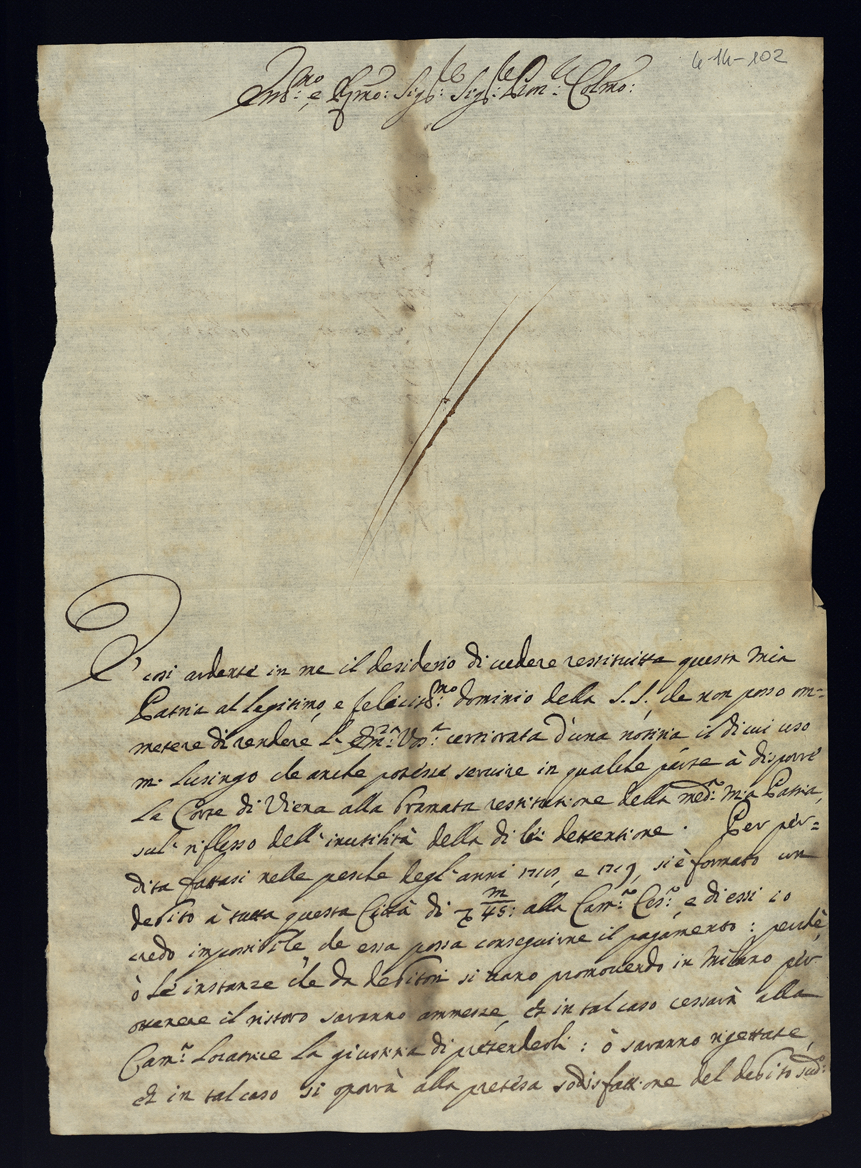 4-14-102
Em:mo e Rmo: Sig:re Sig:re Pron:e Colmo:
È così ardente in me il desiderio di vedere restituitta questa mia
Patria al legitimo, e felicissi:mo dominio della S. S., che non posso om=
metere di rendere l'Em:za V:ra cerziorata d'una notitia il di cui uso
mi lusingo che anche potesse servire in qualche parte à disporre
la Corte di Viena alla bramata restitutione della med:a mia Patria,
sul riflesso dell'inutilità della di lei dettentione. Per per=
dita fattasi nelle pesche degl'anni e 1719, si è formato un
debito à tutta questa Città di m/45: alla Cam:a Ces:a e di essi io
credo impossibile che essa possa conseguirne il pagamento: perchè,
ò le instanze che da debitori si vano promovendo in Milano per
ottenere il ristoro saranno ammesse, et in tal caso cessarà alla
Cam:a Locatrice la giustitia di pretenderli: ò saranno rigettate,
et in tal caso si oporrà alla pretesa sodisfattione del debito sud:o